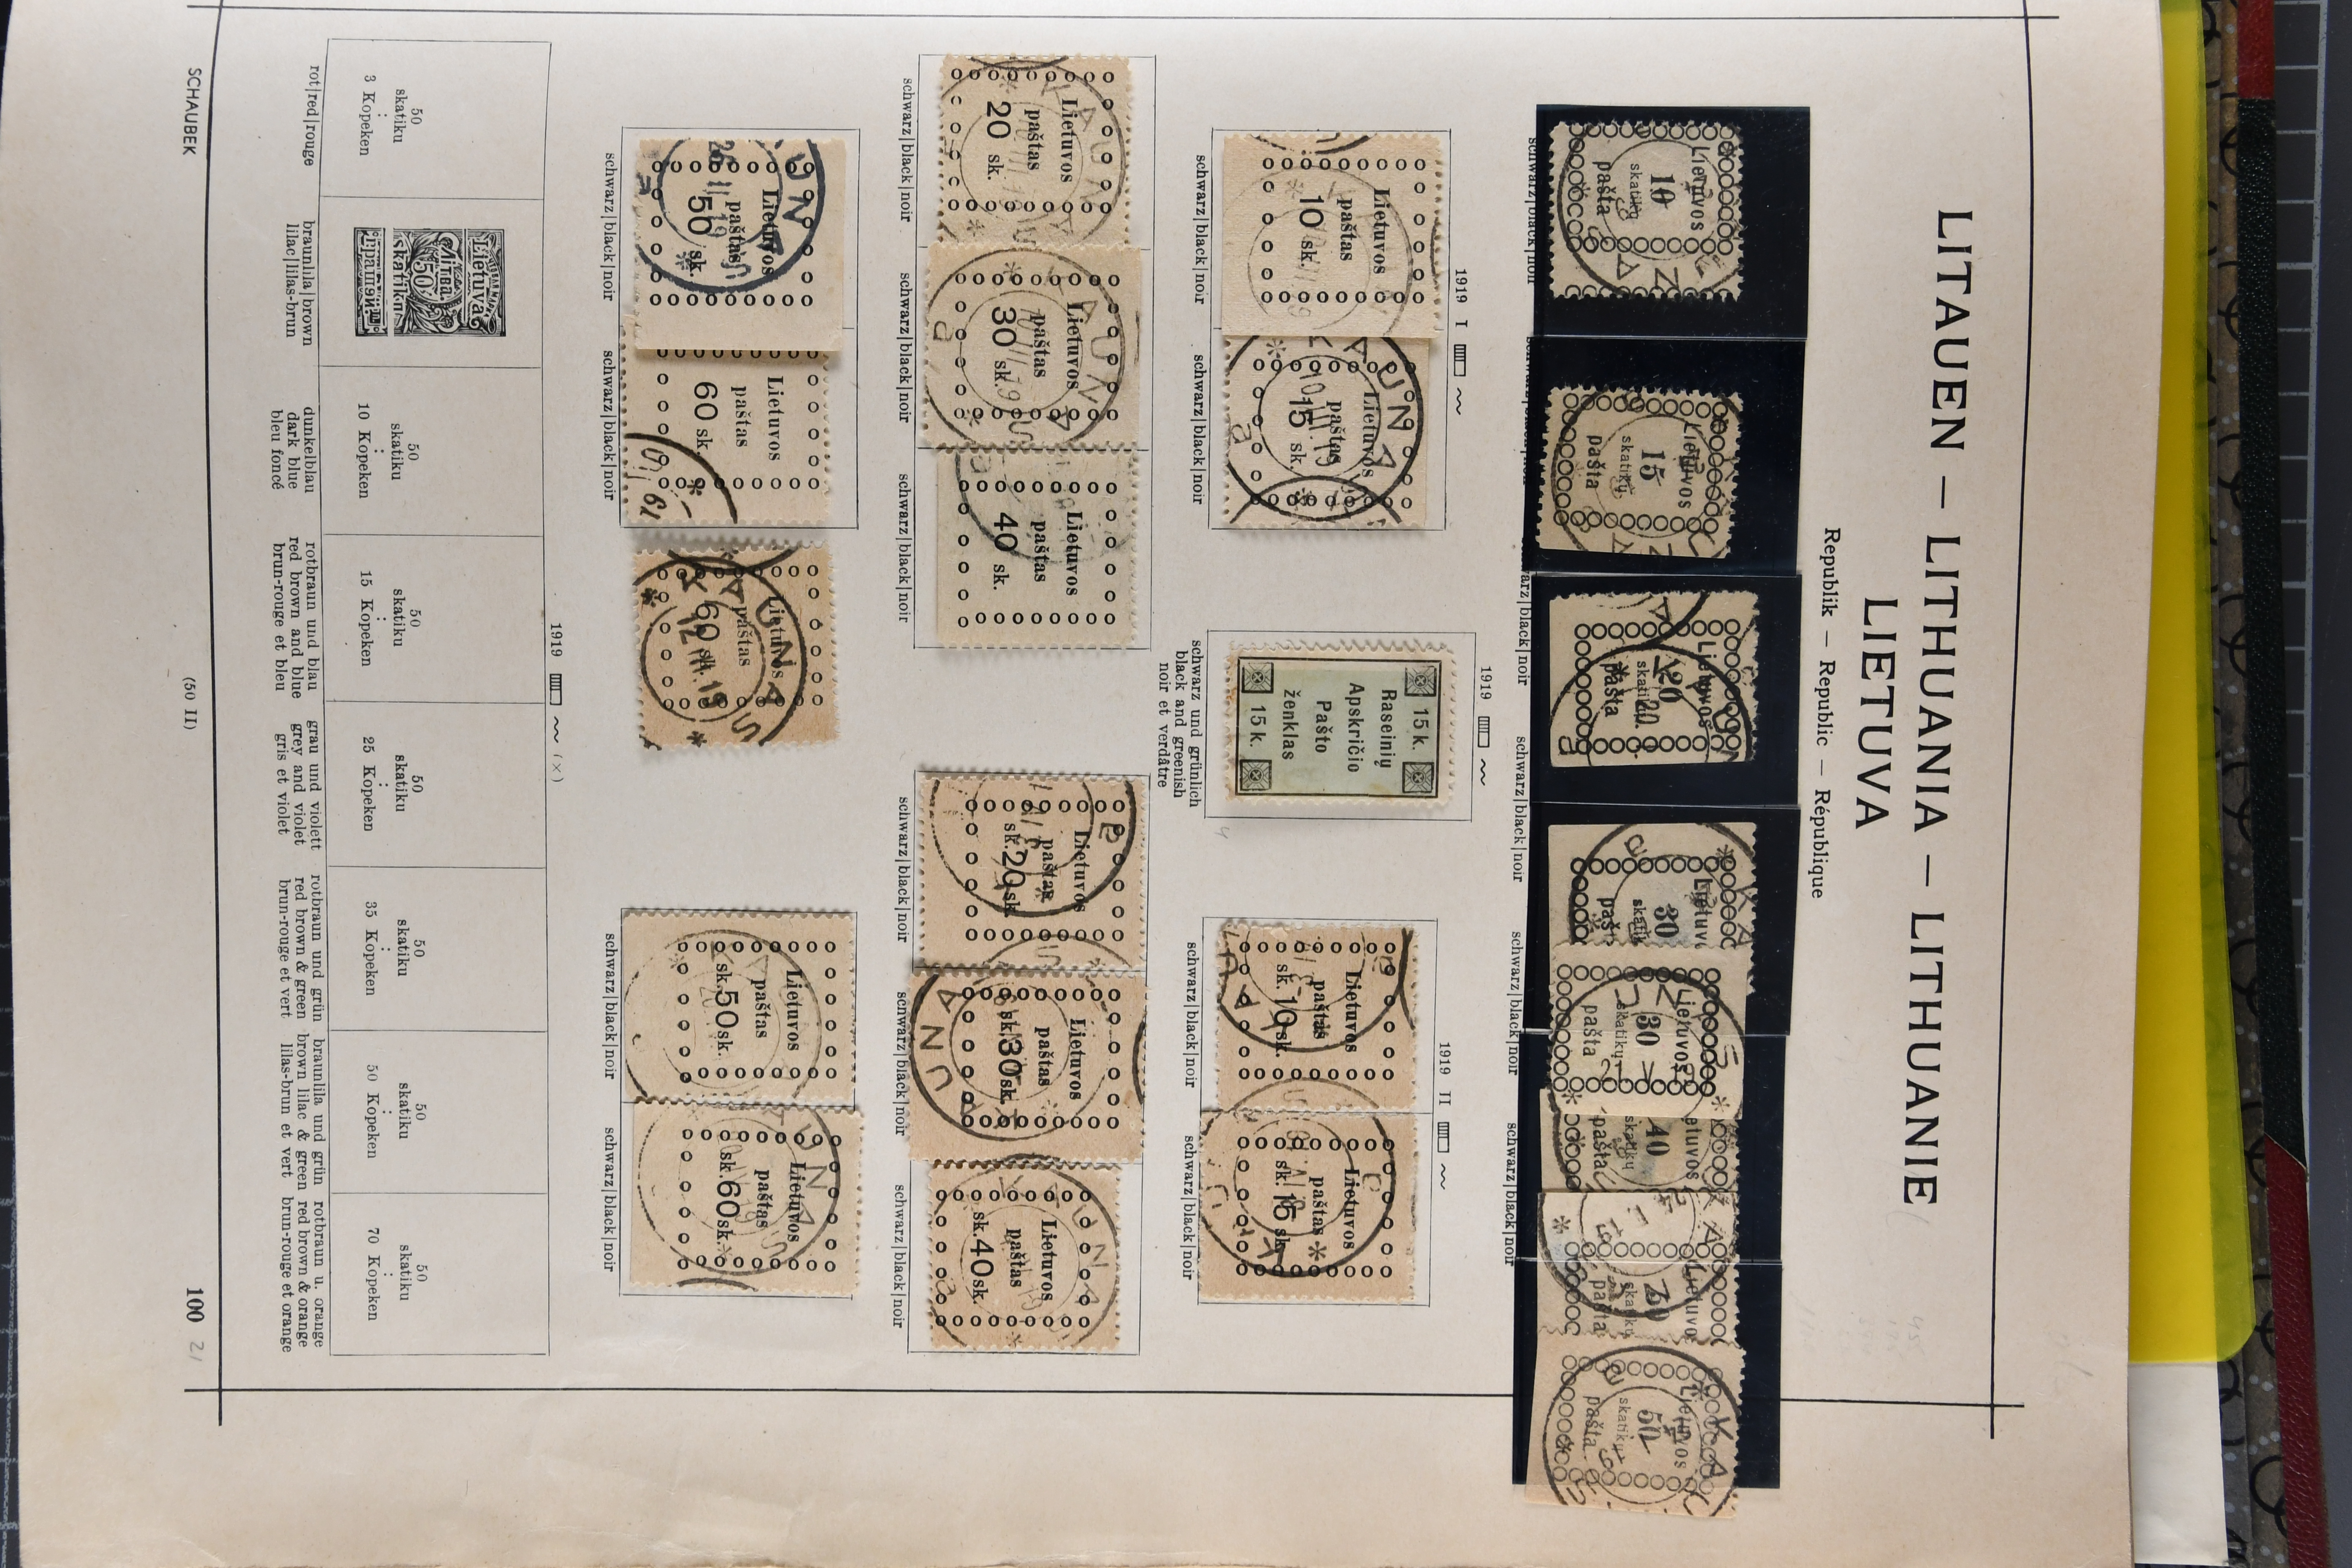 LITAUEN — LITHUANIA — LITHUANIE
LIETUVA
Republik — Republic — République
Lietuvos
10
skatikų
pašta
schwarz|black|noir
Lietuvos
15
skatikų
pašta
Lietuvos
20
skatikų
pašta
schwarz|black|noir
30
schwarz|black|noir
Lietuvos
30
skatikų
pašta
schwarz|black|noir
40
skatikų
pašta
schwarz|black|noir
50
Lietuvos
50
skatikų
pašta
1919 I
Lietuvos
paštas
10 sk.
schwarz|black|noir
Lietuvos
paštas
15 sk.
KAUNAS
10 III 19
schwarz|black|noir
1919
15 k. 15 k.
Raseinių
Apskričio
Pašto
ženklas
schwarz und grünlich
black and greenish
noir et verdâtre
1919 II
Lietuvos
paštas
sk. 10 sk.
schwarz|black|noir
Lietuvos
paštas
sk. 15 sk.
schwarz|black|noir
Lietuvos
paštas
20 sk.
schwarz|black|noir
Lietuvos
paštas
30 sk.
KAUNAS
schwarz|black|noir
Lietuvos
paštas
40 sk.
schwarz|black|noir
Lietuvos
paštas
sk. 20 sk.
schwarz|black|noir
Lietuvos
paštas
sk. 30 sk.
schwarz|black|noir
Lietuvos
paštas
sk. 40 sk.
schwarz|black|noir
Lietuvos
paštas
50 sk.
schwarz|black|noir
Lietuvos
paštas
60 sk.
schwarz|black|noir
Lietuvos
paštas
60 sk.
KAUNAS
12 III 19
Lietuvos
paštas
sk. 50 sk.
schwarz|black|noir
Lietuvos
paštas
sk. 60 sk.
schwarz|black|noir
1919 (x)
50
skatiku
:
3 Kopeken
rot|red|rouge
Lietuva
50
skatiku
braunlila|brown
lilac|lilas-brun
50
skatiku
:
10 Kopeken
dunkelblau
dark blue
bleu foncé
50
skatiku
:
15 Kopeken
rotbraun und blau
red brown and blue
brun-rouge et bleu
50
skatiku
:
25 Kopeken
grau und violett
grey and violet
gris et violet
50
skatiku
:
35 Kopeken
rotbraun und grün
red brown & green
brun-rouge et vert
50
skatiku
:
50 Kopeken
braunlila und grün
brown lilac & green
lilas-brun et vert
50
skatiku
:
70 Kopeken
rotbraun u. orange
red brown & orange
brun-rouge et orange
SCHAUBEK
(50 II)
100 21